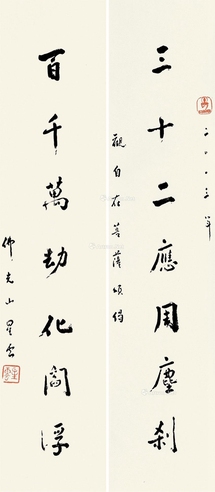 二〇〇三年
三十二應用塵剎
觀自在菩薩頌偈
百千萬劫化閻浮
佛光山星雲